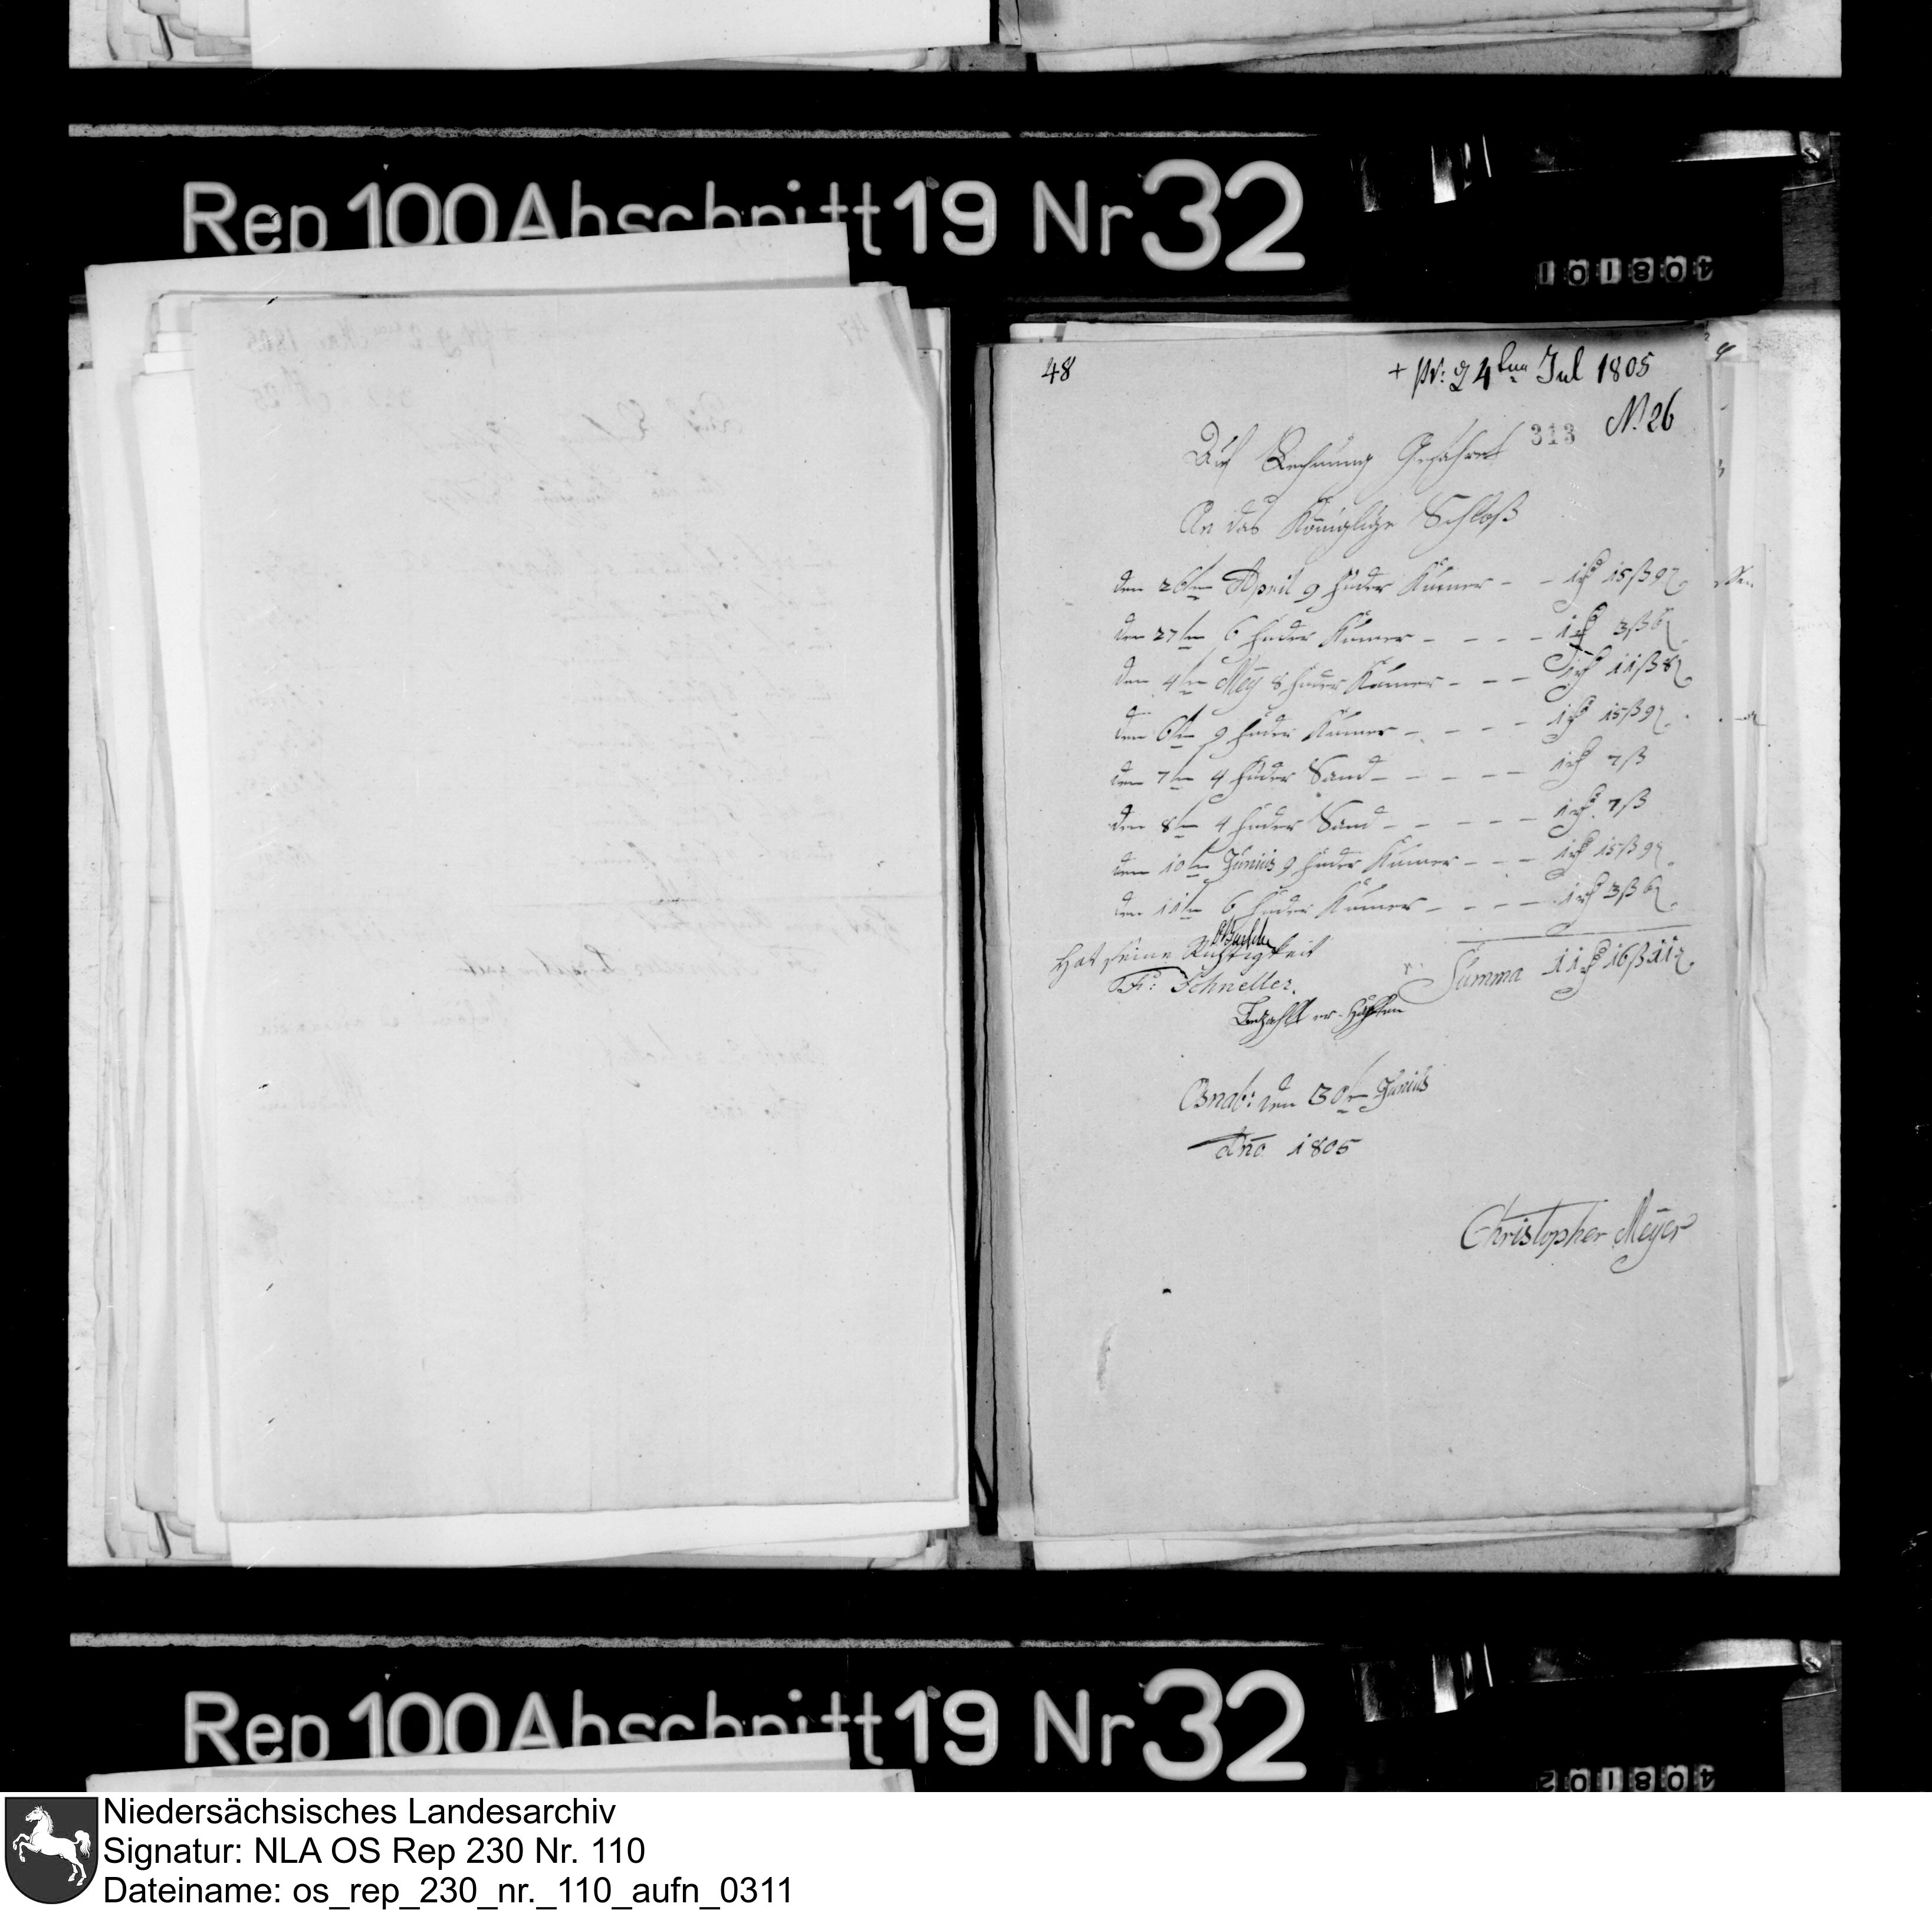 Rep 100 Abschnitt 19 Nr 32
101804
48
+ pr: d 4ten Jul 1805
313 N. 26
Auf Rechnung Gefahren
An das Königlige Schloß
den 26ten April 9 fuder Kumer - - 1 rth 15 ß 9 d
den 27ten 6 fuder Kumer - - - - 1 rth 3 ß 6 d
den 4ten Mey 8 fuder Kumer - - - 1 rth 11 ß 8 d
den 6ten 9 fuder Kumer - - - - 1 rth 15 ß 9 d
den 7ten 4 fuder Sand - - - - - 1 rth 7 ß
den 8ten 4 fuder Sand - - - - - 1 rth 7 ß
den 10ten Junius 9 fuder Kumer - - - 1 rth 15 ß 9 d
den 11ten 6 fuder Kumer - - - - 1 rth 3 ß 6 d
Hat seine Richtigkeit
Summa 11 rth 16 ß 11 d
Fr: Schneller.
Bezahlt
Osnab: den 30ten Junius
Ano 1805
Christopher Meyer
Rep 100 Abschnitt 19 Nr 32
201804
Niedersächsisches Landesarchiv
Signatur: NLA OS Rep 230 Nr. 110
Dateiname: os_rep_230_nr._110_aufn_0311